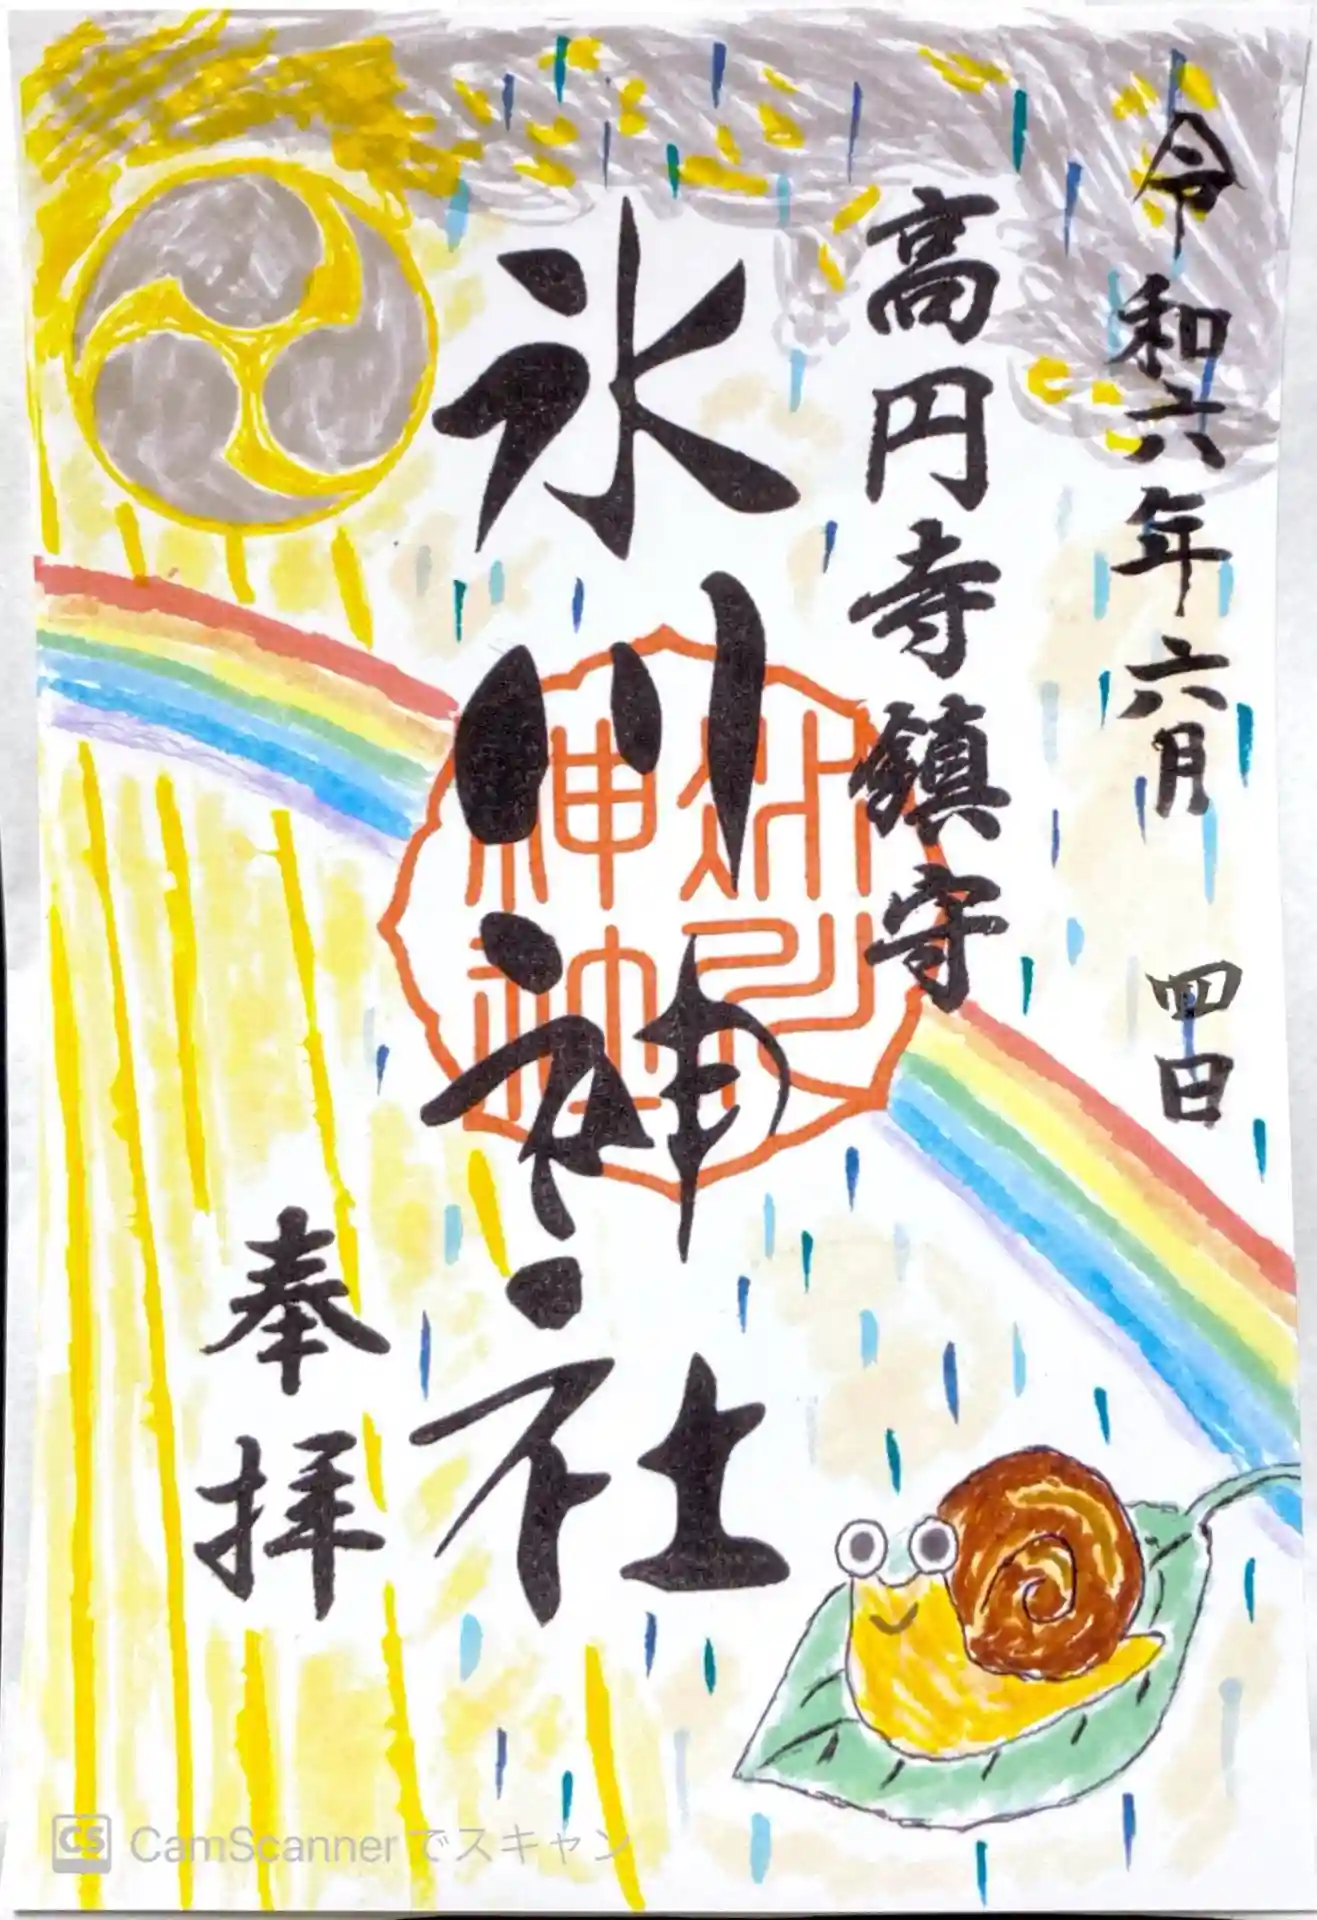 令和六年六月 四日
高円寺鎮守
氷川神社
氷川
神社
奉拝
CS CamScannerでスキャン